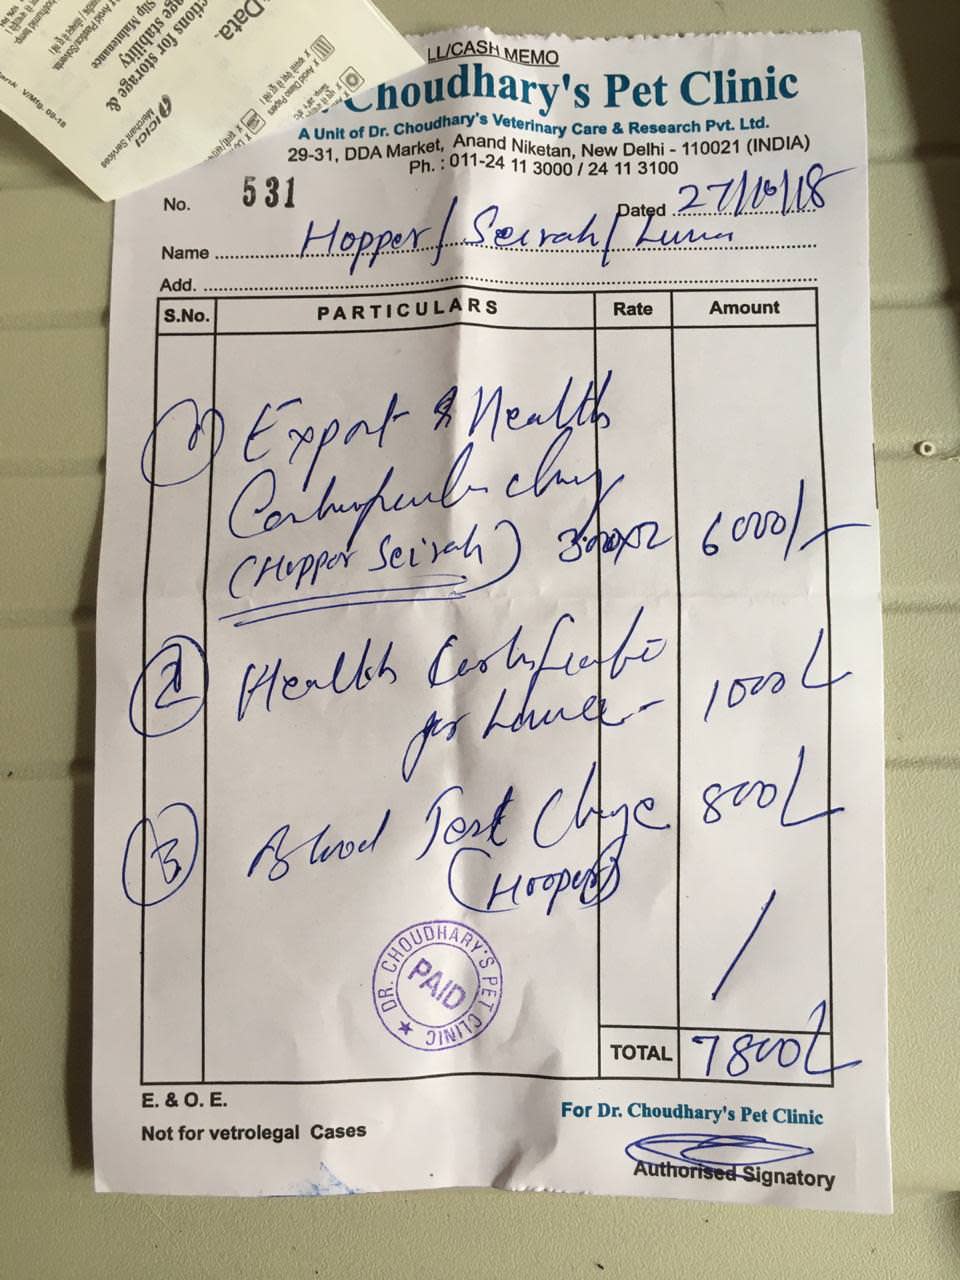 Data.
& stability
Slip Maintenance
ICICI
Merchant Services
V/Mfg. 09-18
LL/CASH MEMO
Choudhary's Pet Clinic
A Unit of Dr. Choudhary's Veterinary Care & Research Pvt. Ltd.
29-31, DDA Market, Anand Niketan, New Delhi - 110021 (INDIA)
Ph. : 011-24 11 3000 / 24 11 3100
No. 531
Dated 27/10/18
Name Hopper/Seirah/Luna
Add.
S.No. PARTICULARS Rate Amount
1) Export & Health
(Hopper Seirah) 3000x2 6000/-
2 Health Certificate
for Luna - 1000/-
3. Blood Test Charge 800/-
(Hooper)
DR. CHOUDHARY'S PET CLINIC
PAID
TOTAL 7800/-
E. & O. E.
For Dr. Choudhary's Pet Clinic
Not for vetrolegal Cases
Authorised Signatory